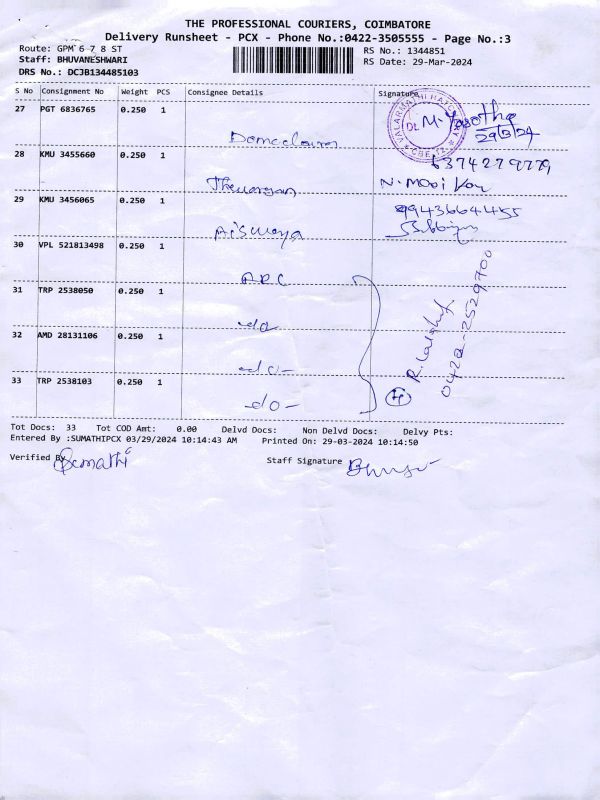 THE PROFESSIONAL COURIERS, COIMBATORE
Delivery Runsheet - PCX - Phone No.:0422-3505555 - Page No.:3
Route: GPM 6 7 8 ST
RS No.: 1344851
Staff: BHUVANESHWARI
RS Date: 29-Mar-2024
DRS No.: DCJB134485103
S No Consignment No Weight PCS Consignee Details Signature
27 PGT 6836765 0.250 1
29/3/24
28 KMU 3455660 0.250 1
29 KMU 3456065 0.250 1
30 VPL 521813498 0.250 1
ADC
31 TRP 2538050 0.250 1
-do
32 AMD 28131106 0.250 1
-do-
33 TRP 2538103 0.250 1
-do-
0422-2529700
4
Tot Docs: 33 Tot COD Amt: 0.00 Delvd Docs: Non Delvd Docs: Delvy Pts:
Entered By :SUMATHIPCX 03/29/2024 10:14:43 AM Printed On: 29-03-2024 10:14:50
Verified By
Staff Signature